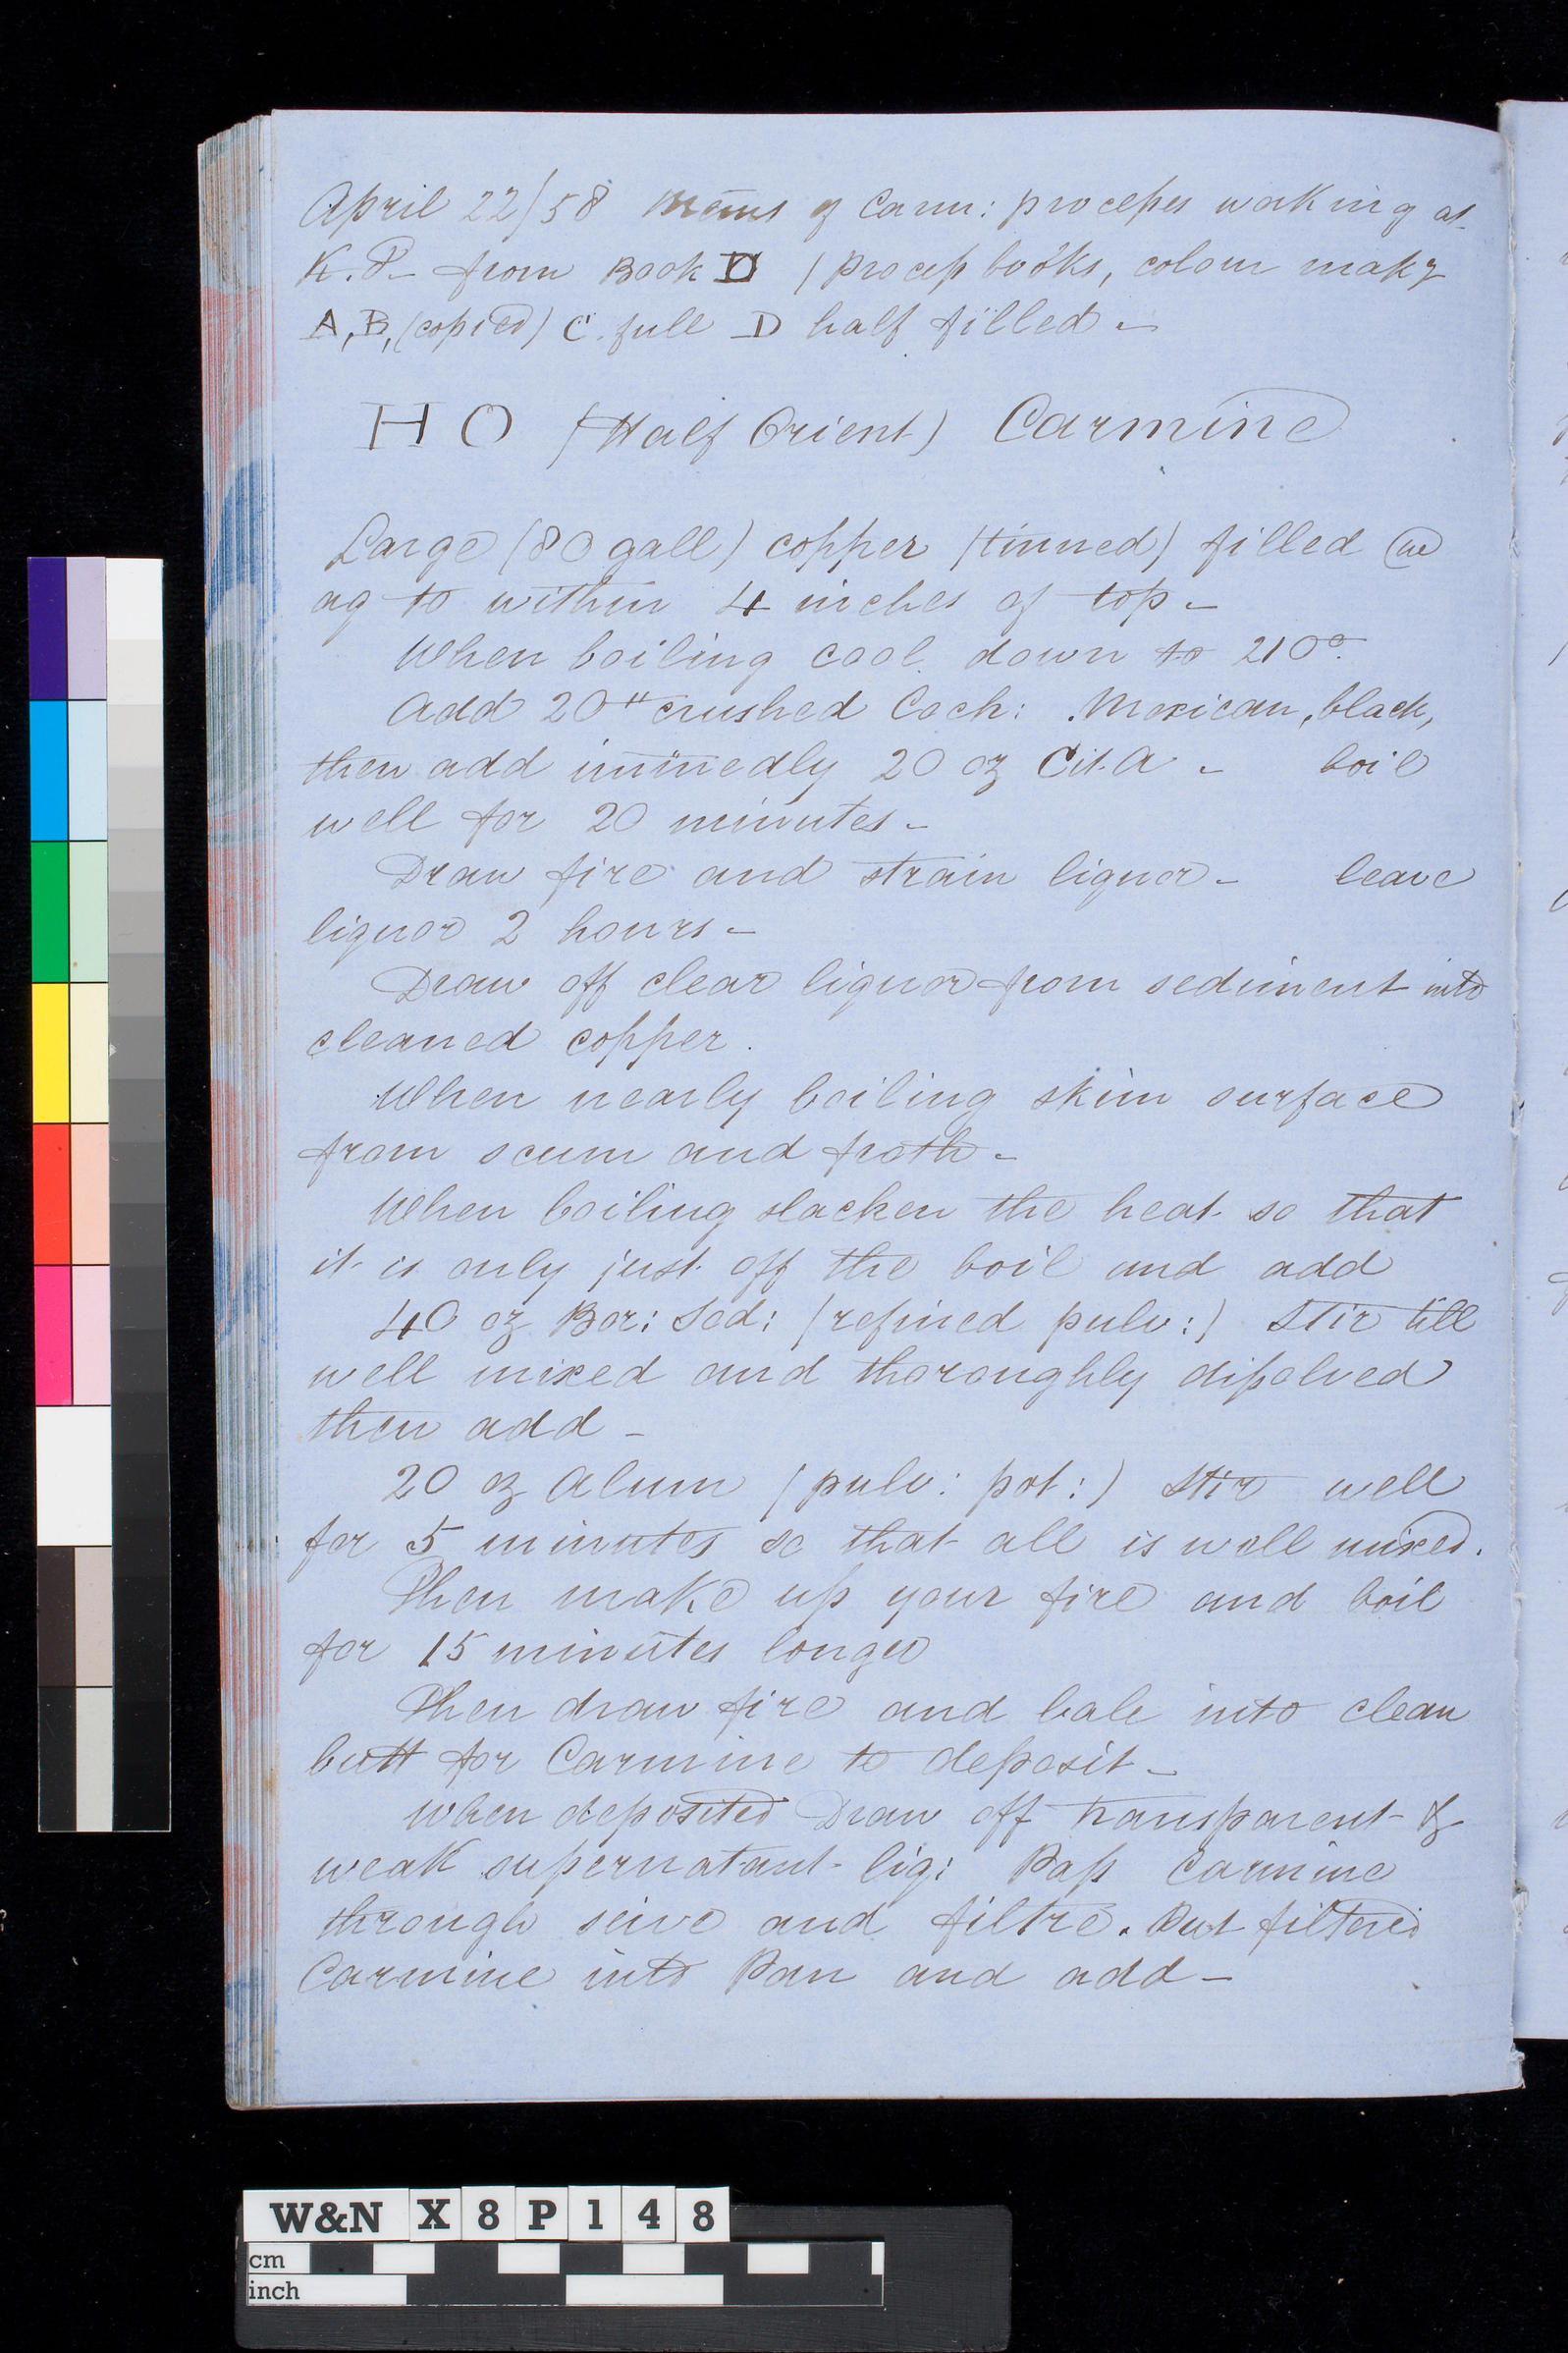 April 22/58 Mems of Carm: processes working at
K.P- from Book D (process books, colour makg
A, B, (copied) C. full D half filled -
H O (Half Orient) Carmine
Large (80 gall) copper (tinned) filled
aq to within 4 inches of top -
When boiling cool down to 210°
Add 20" crushed Coch: Mexican, black,
then add immedly 20 oz Cit. A - boil
well for 20 minutes -
Draw fire and strain liquor - leave
liquor 2 hours -
Draw off clear liquor from sediment into
cleaned copper.
When nearly boiling skim surface
from scum and froth -
When boiling slacken the heat so that
it is only just off the boil and add
40 oz Bor: Sod: (refined pulv:) Stir till
well mixed and thoroughly dissolved
then add -
20 oz Alum (pulv: pot:) Stir well
for 5 minutes so that all is well mixed.
Then make up your fire and boil
for 15 minutes longer
Then draw fire and bale into clean
butt for Carmine to deposit -
When deposited Draw off transparent &
weak supernatant liq: Pass Carmine
through seive and filtre. Put filtered
Carmine into Pan and add -
W&N X8P148
cm
inch